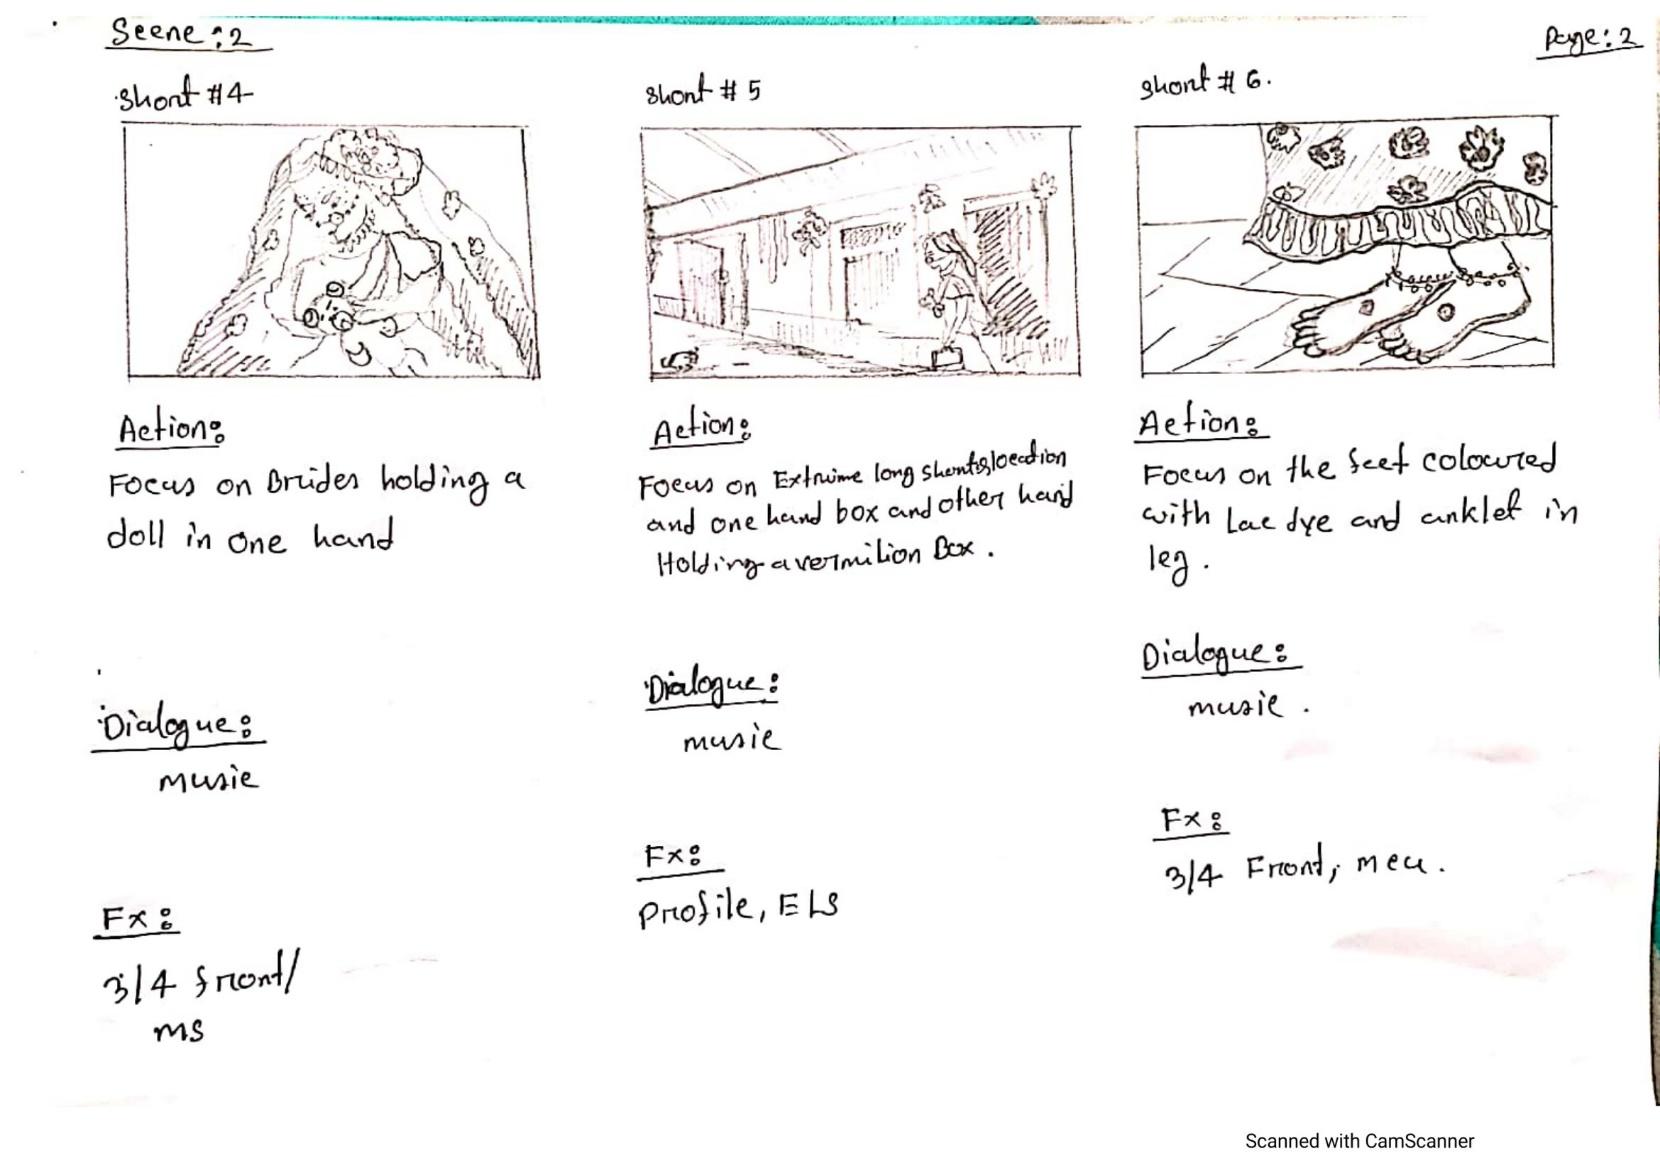 Scene: 2
Page: 2
Short #4
Short # 5
Short # 6.
Action:
Focus on Brides holding a
doll in one hand
Action:
Focus on Extrime long short&location
and one hand box and other hand
Holding a vermilion Box.
Action:
Focus on the feet coloured
with Lac dye and anklet in
leg.
Dialogue:
music
Dialogue:
music
Dialogue:
music.
Fx:
3/4 front/
ms
Fx:
Profile, ELS
Fx:
3/4 Front, mcu.
Scanned with CamScanner